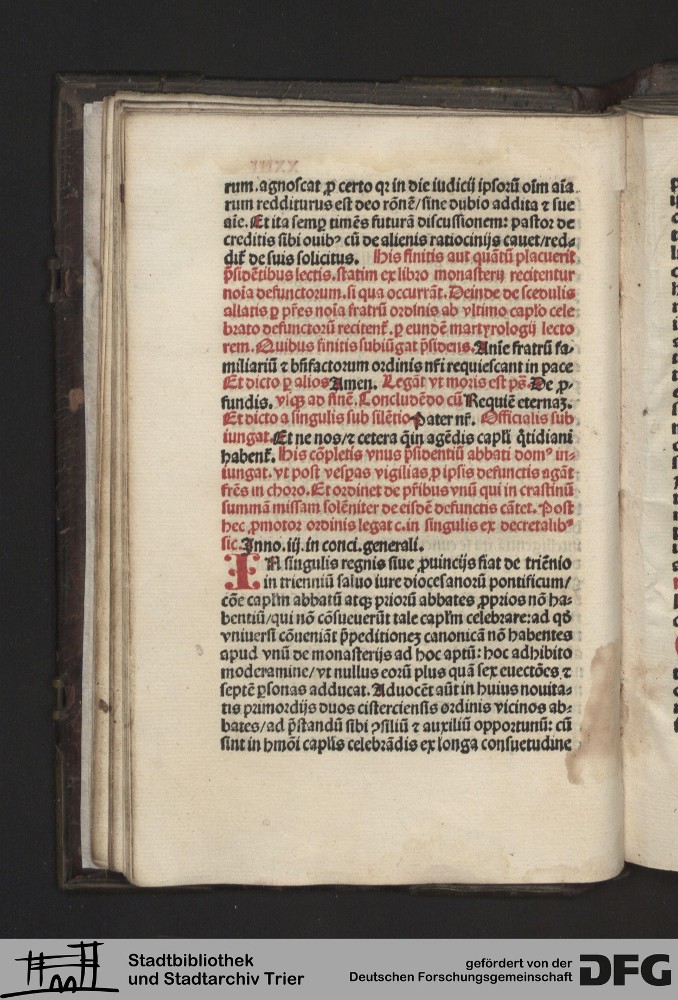 rum. agnoscat ꝓ certo qꝛ in die iudicij ipsoꝝ oīm aīa
rum redditurus est deo rōnē/sine dubio addita ⁊ sue
aīe. Et ita semꝑ timēs futurā discussionem: pastor de
creditis sibi ouibꝰ cū de alienis ratiocinijs cauet/red⸗
dit̃ de suis solicitus. His finitis aut quātū placuerit
p̄sidētibus lectis. statim ex libro monasterij recitentur
noīa defunctorum. si qua occurrāt. Deinde de scedulis
allatis ꝑ pr̄es noīa fratrū ordinis ab vltimo cap̄lo cele
brato defunctorū recitent̃. ꝑ eundē martyrologij lecto
rem. Quibus finitis subiūgat p̄sidens. Anīe fratrū fa⸗
miliariū ⁊ bn̄factorum ordinis nr̄i requiescant in pace
Et dicto ꝑ alios Amen. Legāt vt moris est ps̄. De ꝓ⸗
fundis. vsqꝫ ad finē. Concludēdo cū Requiē eternaꝫ.
Et dicto a singulis sub silētio Pater nr̄. Officialis sub
iungat. Et ne nos/⁊ cetera q̄ in agēdis cap̄li q̄tidiani
habent̃. His cōpletis vnus p̄sidentiū abbati domꝰ in⸗
iungat. vt post vesꝑas vigilias ꝓ ipsis defunctis agāt
fr̄es in choro. Et ordinet de pr̄ibus vnū qui in crastinū
summā missam solēniter de eisdē defunctis cātet. Post
hec ꝓmotor ordinis legat c. in singulis ex decretalibꝰ
sic. Inno. iij. in conci. generali.
IN singulis regnis siue ꝓuincijs fiat de triēnio
in trienniū saluo iure diocesanorū pontificum/
cōe cap̄lm abbatū atqꝫ priorū abbates ꝓprios nō ha⸗
bentiū/qui nō cōsueuerūt tale cap̄lm celebrare: ad qd̄
vniuersi cōueniāt p̄peditioneꝫ canonicā nō habentes
apud vnū de monasterijs ad hoc aptū: hoc adhibito
moderamine/vt nullus eorū plus quā sex euectōes ⁊
septē ꝑsonas adducat. Aduocēt aūt in huius nouita⸗
tis primordijs duos cisterciensis ordinis vicinos ab⸗
bates/ad p̄standū sibi ꝯsiliū ⁊ auxiliū opportunū: cū
sint in hmōi cap̄lis celebrādis ex longa consuetudine
Stadtbibliothek
und Stadtarchiv Trier
gefördert von der
Deutschen Forschungsgemeinschaft
DFG